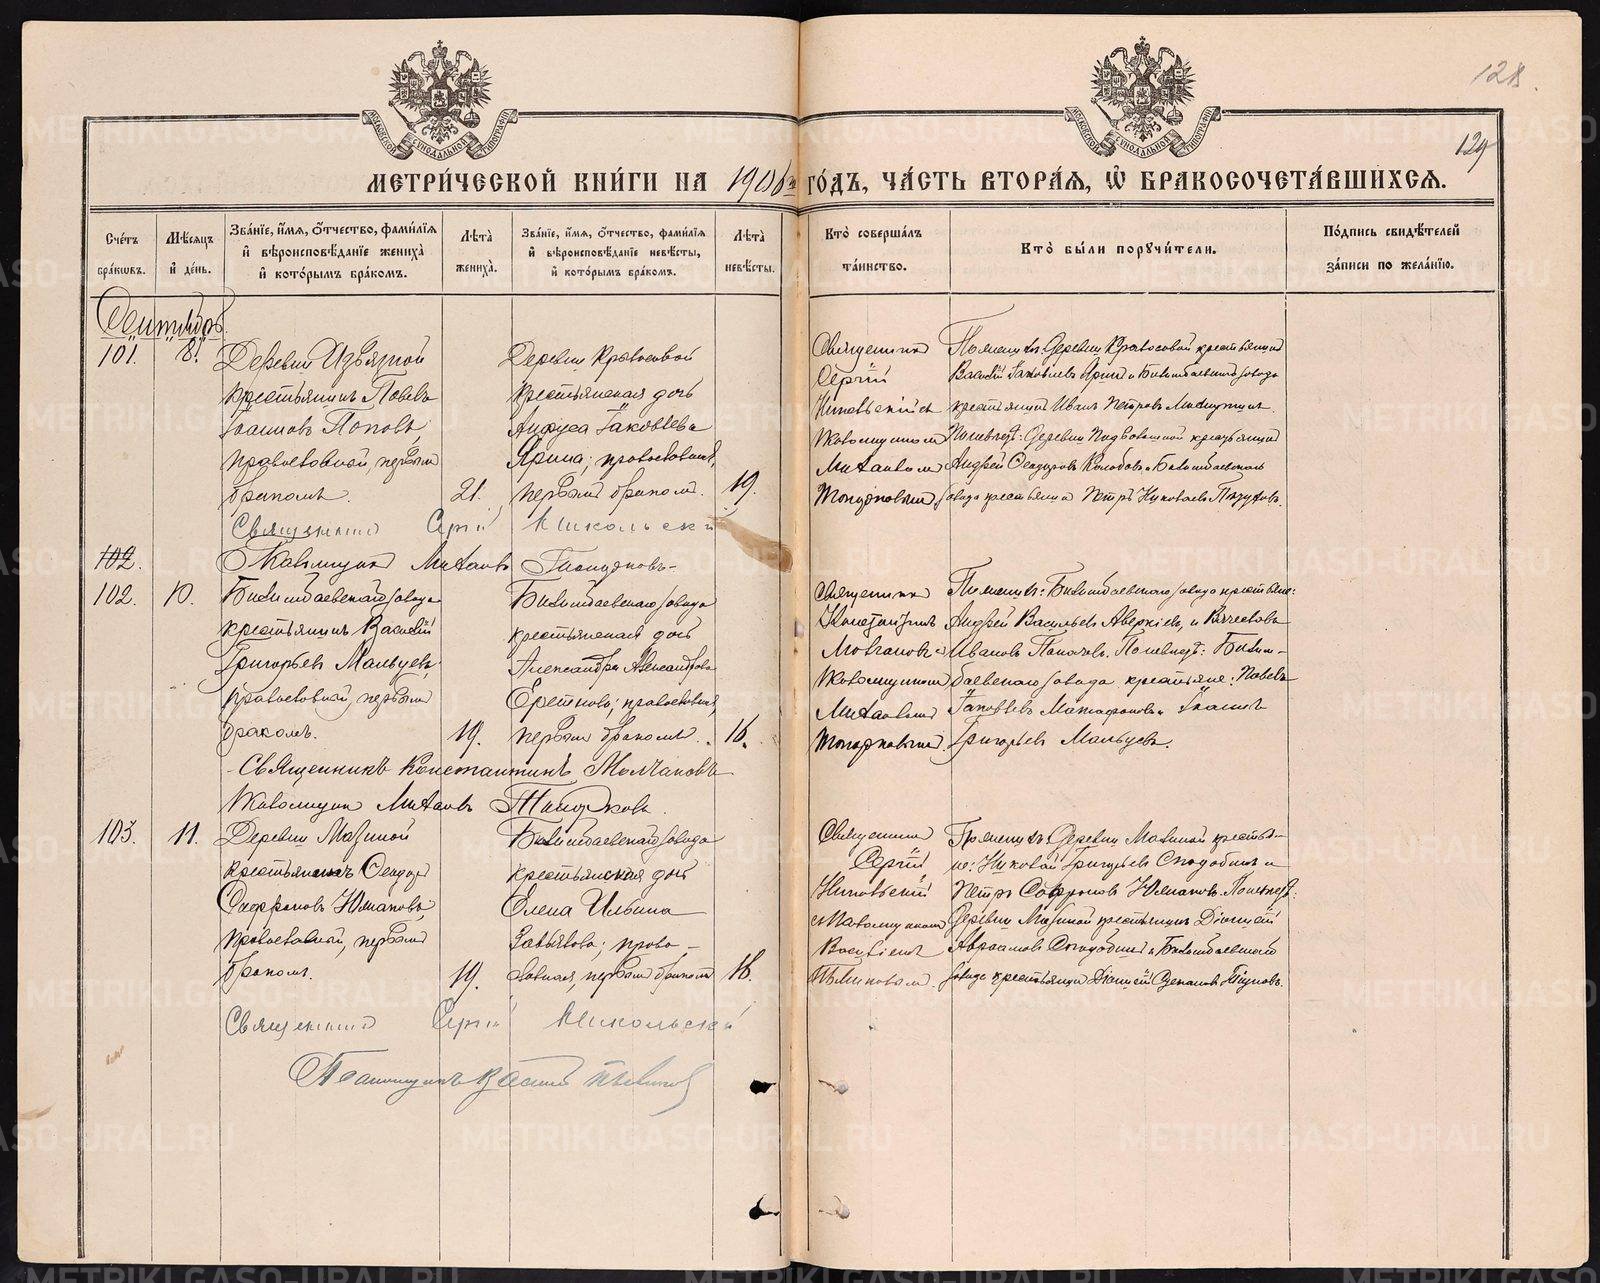 128
129
МЕТРИ́ЧЕСКОЙ КНИ́ГИ НА 1906 ГО́ДЪ, ЧА́СТЬ ВТОРА́Я, Ѡ҆ БРАКОСОЧЕТА́ВШИХСЯ.
Сче́тъ бра́кωвъ.
Мѣ́сяцъ и҆ де́нь.
Зва́нїе, и҆́мя, о҆́тчество, фами́лїя и҆ вѣроисповѣ́данїе жениха̀ и҆ кото́рымъ бра́комъ.
Лѣ́та жениха̀.
Зва́нїе, и҆́мя, о҆́тчество, фами́лїя и҆ вѣроисповѣ́данїе невѣ́сты, и҆ кото́рымъ бра́комъ.
Лѣ́та невѣ́сты.
Кто̀ соверша́лъ та́инство.
Кто̀ бы́ли порꙋчи́тели.
По́дпись свидѣ́телей за́писи по жела́нїю.
Сентябрь
101.
8.
Деревни
крестьянинъ Павелъ
Іоанновъ Поповъ,
православный, первым
бракомъ.
21.
Деревни Крылосовой
крестьянская дочь
Анфуса Іаковлева
Ярина; православная,
первым браком.
19.
Священник
Сергій
Никольскій съ
псаломщиком
Михаилом
Топорковым.
По женихѣ: Деревни Крылосовой крестьянин
Василій Іаковлевъ Ярин и Билимбаевского завода
крестьянин Иванъ Петровъ
По невѣст: Деревни крестьянин
Андрей Феодоровъ и Билимбаевскаго
завода крестьянин Петръ Николаевъ
Священник Сергій Никольскій
102.
Псаломщик Михаилъ Топорковъ
102.
10.
Билимбаевскаго завода
крестьянинъ Василій
Григорьевъ Мальцевъ,
православный, первым
бракомъ.
19.
Билимбаевскаго завода
крестьянская дочь
Александра Александрова
православная,
первым бракомъ.
16.
Священник
Константинъ
Молчановъ съ
псаломщиком
Михаилом
Топорковым.
По женихѣ: Билимбаевскаго завода крестьяне:
Андрей Васильевъ Аверкіевъ, и Вячеславъ
Ивановъ По невѣст: Билим-
баевскаго завода крестьяне: Павелъ
Іаковлевъ и Іоаннъ
Григорьев Мальцевъ.
Священникъ Константинъ Молчановъ
Псаломщик Михаилъ Топорковъ.
103.
11.
Деревни Мазиной
крестьянинъ Феодоръ
Софроновъ Юмановъ,
православный, первым
браком.
19.
Билимбаевскаго завода
крестьянская дочь
Елена Ильина
Завьялова; право-
славная, первым браком
18.
Священник
Сергій
Никольскій
с псаломщиком
Василіемъ
По женихѣ: Деревни Мазиной крестья-
не: Николай Григорьевъ Сподобинъ и
Петръ Софроновъ Юмановъ. По невѣст:
Деревни Мазиной крестьянинъ
Авраамовъ Сподобинъ и Билимбаевского
завода крестьянин
Священник Сергій Никольскій
Псаломщикъ Василій